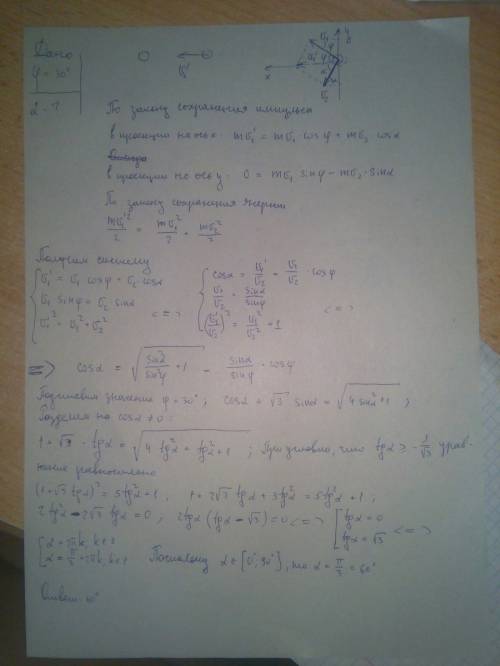 Дано
φ = 30°
α - ?
По закону сохранения импульса
в проекции на ось x: mv₁' = mv₁ cosφ + mv₂ cosα
в проекции на ось y: 0 = mv₁ sinφ - mv₂·sinα
По закону сохранения энергии
mv₁'²/2 = mv₁²/2 + mv₂²/2
Получим систему
{ v₁' = v₁ cosφ + v₂ cosα
v₁ sinφ = v₂ sinα
v₁'² = v₁² + v₂² <=>
{ cosα = v₁'/v₂ - v₁/v₂ · cosφ
v₁/v₂ = sinα/sinφ
(v₁'/v₂)² = v₁²/v₂² + 1 <=>
=> cosα = √(sin²α/sin²φ + 1) - sinα/sinφ · cosφ
Подставим значение φ = 30°; cosα + √3 sinα = √(4 sin²α + 1);
Разделим на cosα ≠ 0:
1 + √3 · tgα = √(4 tg²α + tg²α + 1); При условии, что tgα ≥ -1/√3 урав-
нение равносильно
(1 + √3 tgα)² = 5tg²α + 1, 1 + 2√3 tgα + 3tg²α = 5tg²α + 1;
2tg²α - 2√3 tgα = 0; 2tgα (tgα - √3) = 0 <=> [ tgα = 0
tgα = √3 <=>
[ α = πk, k∈Z
α = π/3 + πk, k∈Z Поскольку α ∈ [0°, 90°], то α = π/3 = 60°
Ответ: 60°